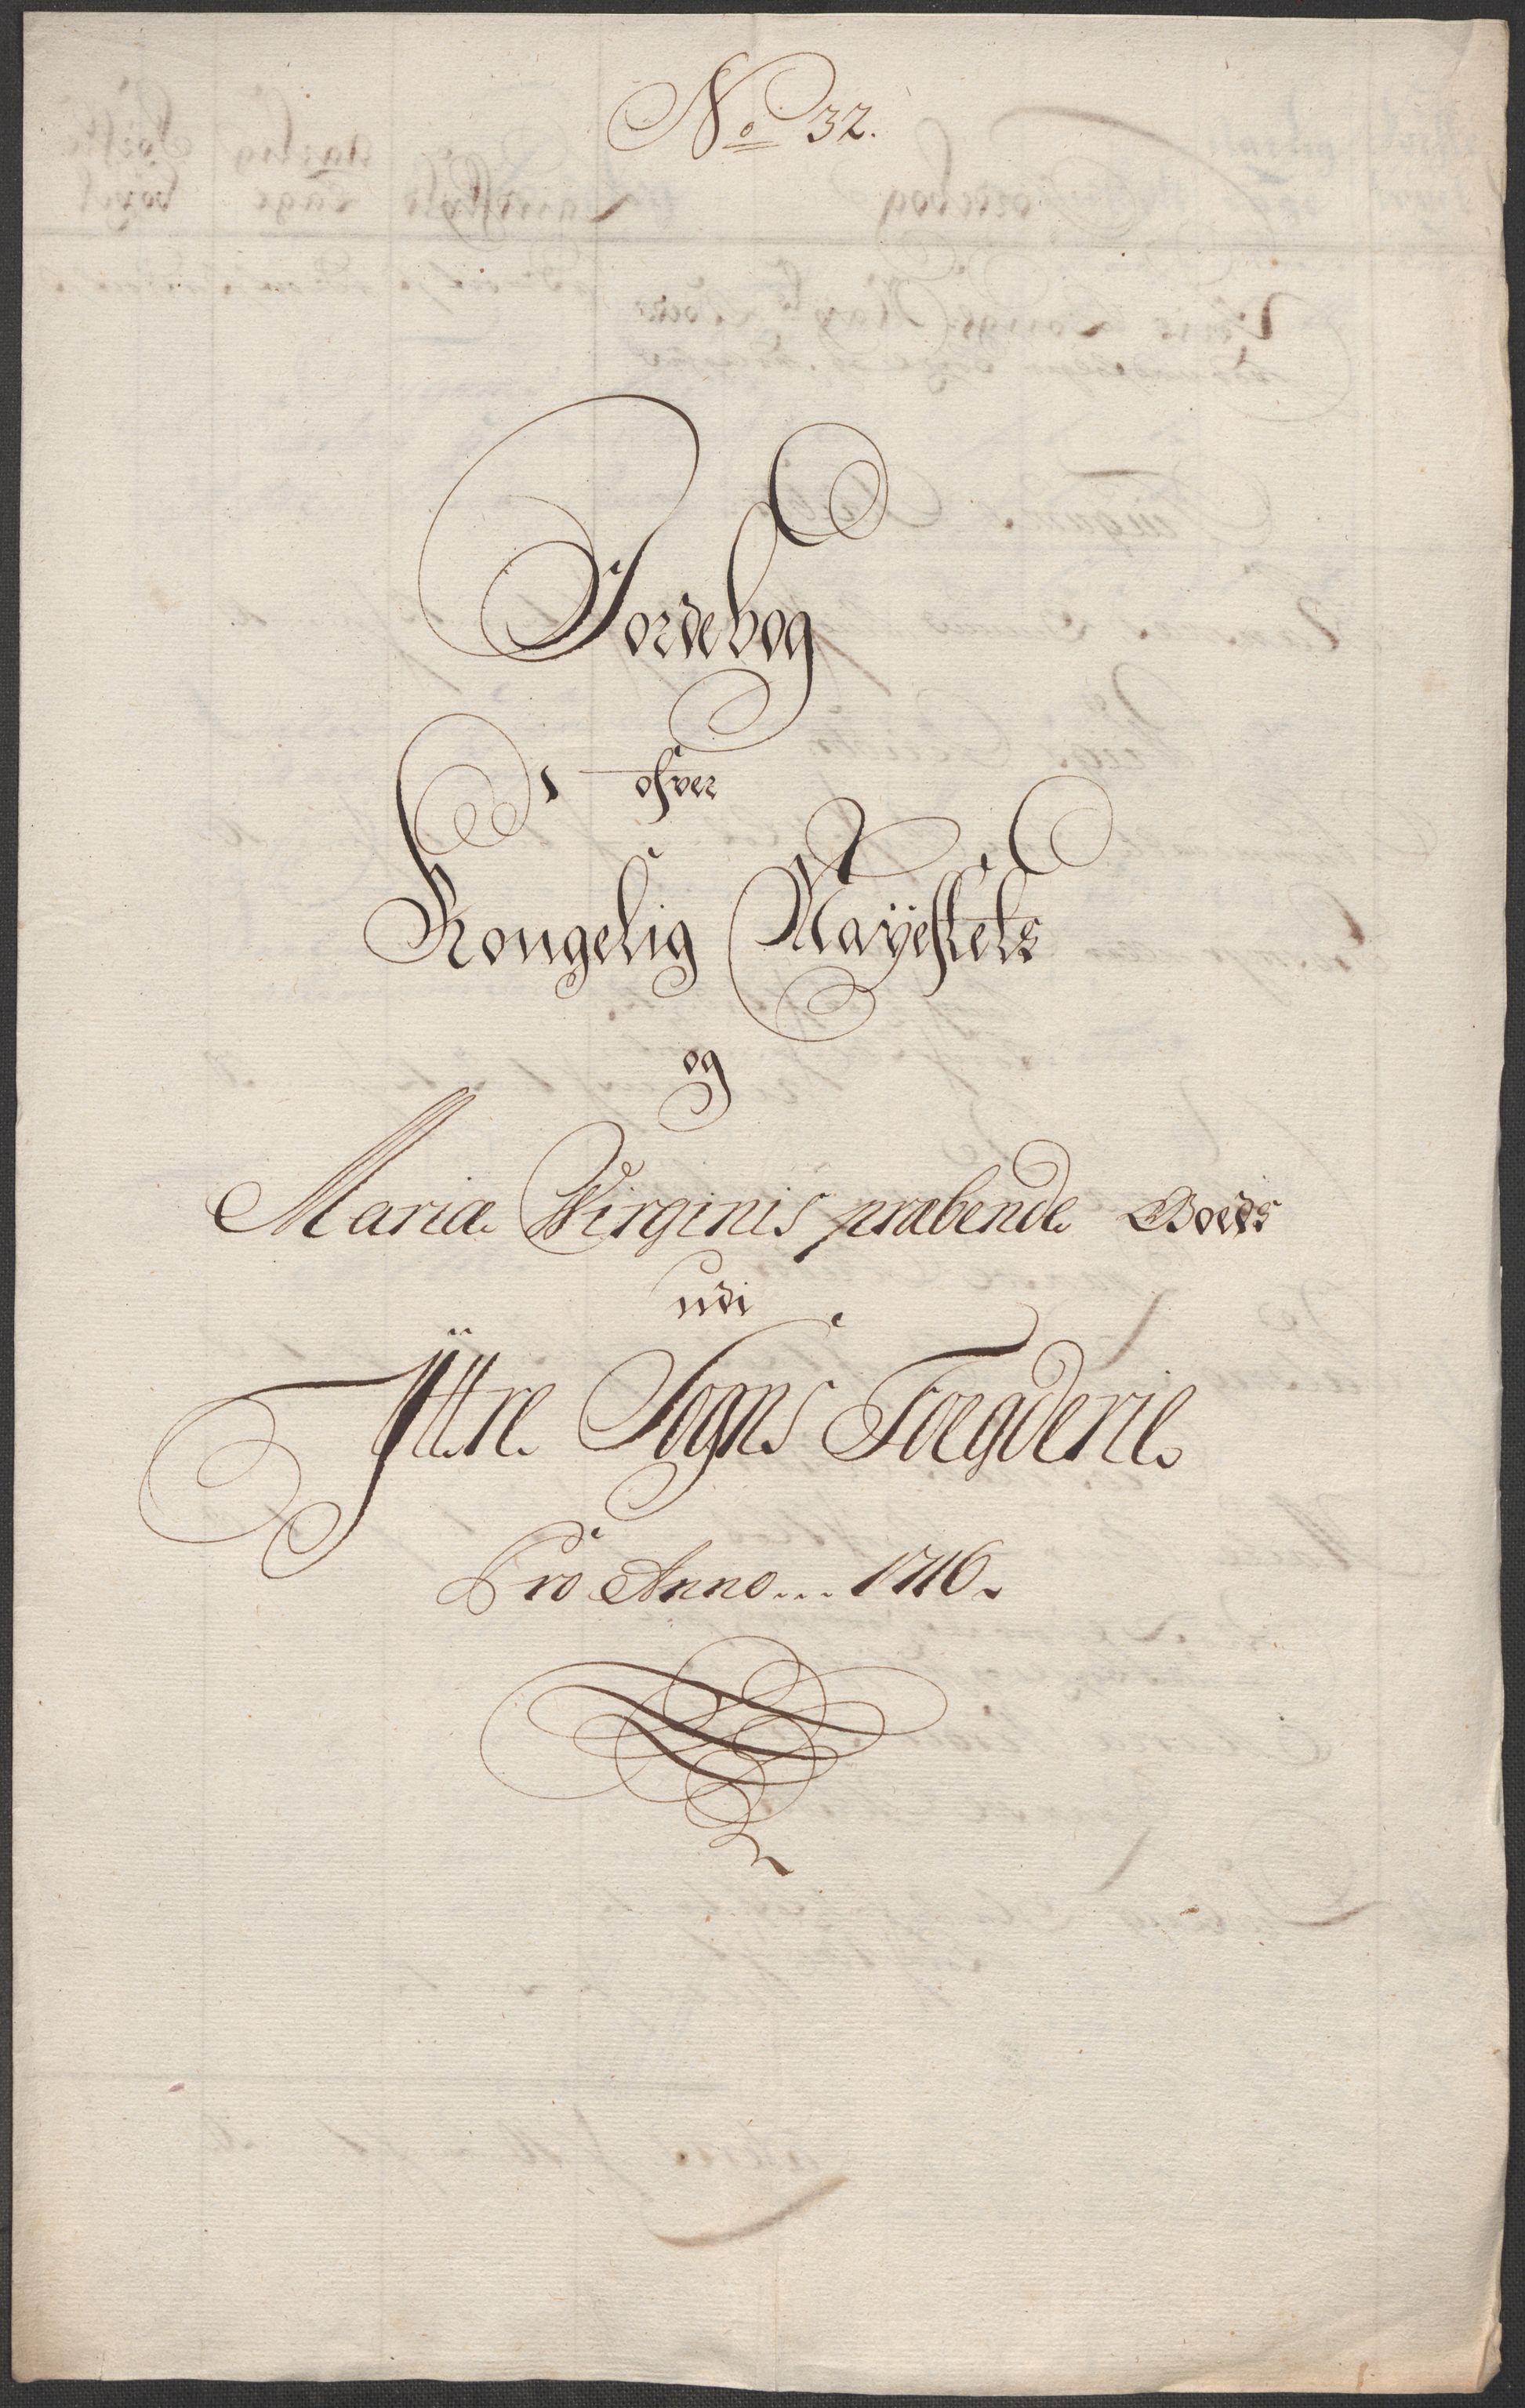 No 32.
Jordebog
ofver
Kongelig Mayestets
og
Mariæ Virginis præbende Goeds
udi
Ÿttre Sogns Foegderie
Pro Anno... 1716.